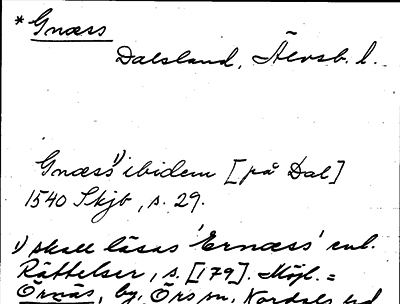 * Gnæss
Dalsland, Älvsb. l.
Gnæss¹) ibidem [på Dal]
1540 Skjb, s. 29.
¹) skall läsas 'Ernæss' enl.
Rättelser, s. [179]. Möjl. =
Örnäs, by, Örs sn, Nordals hd